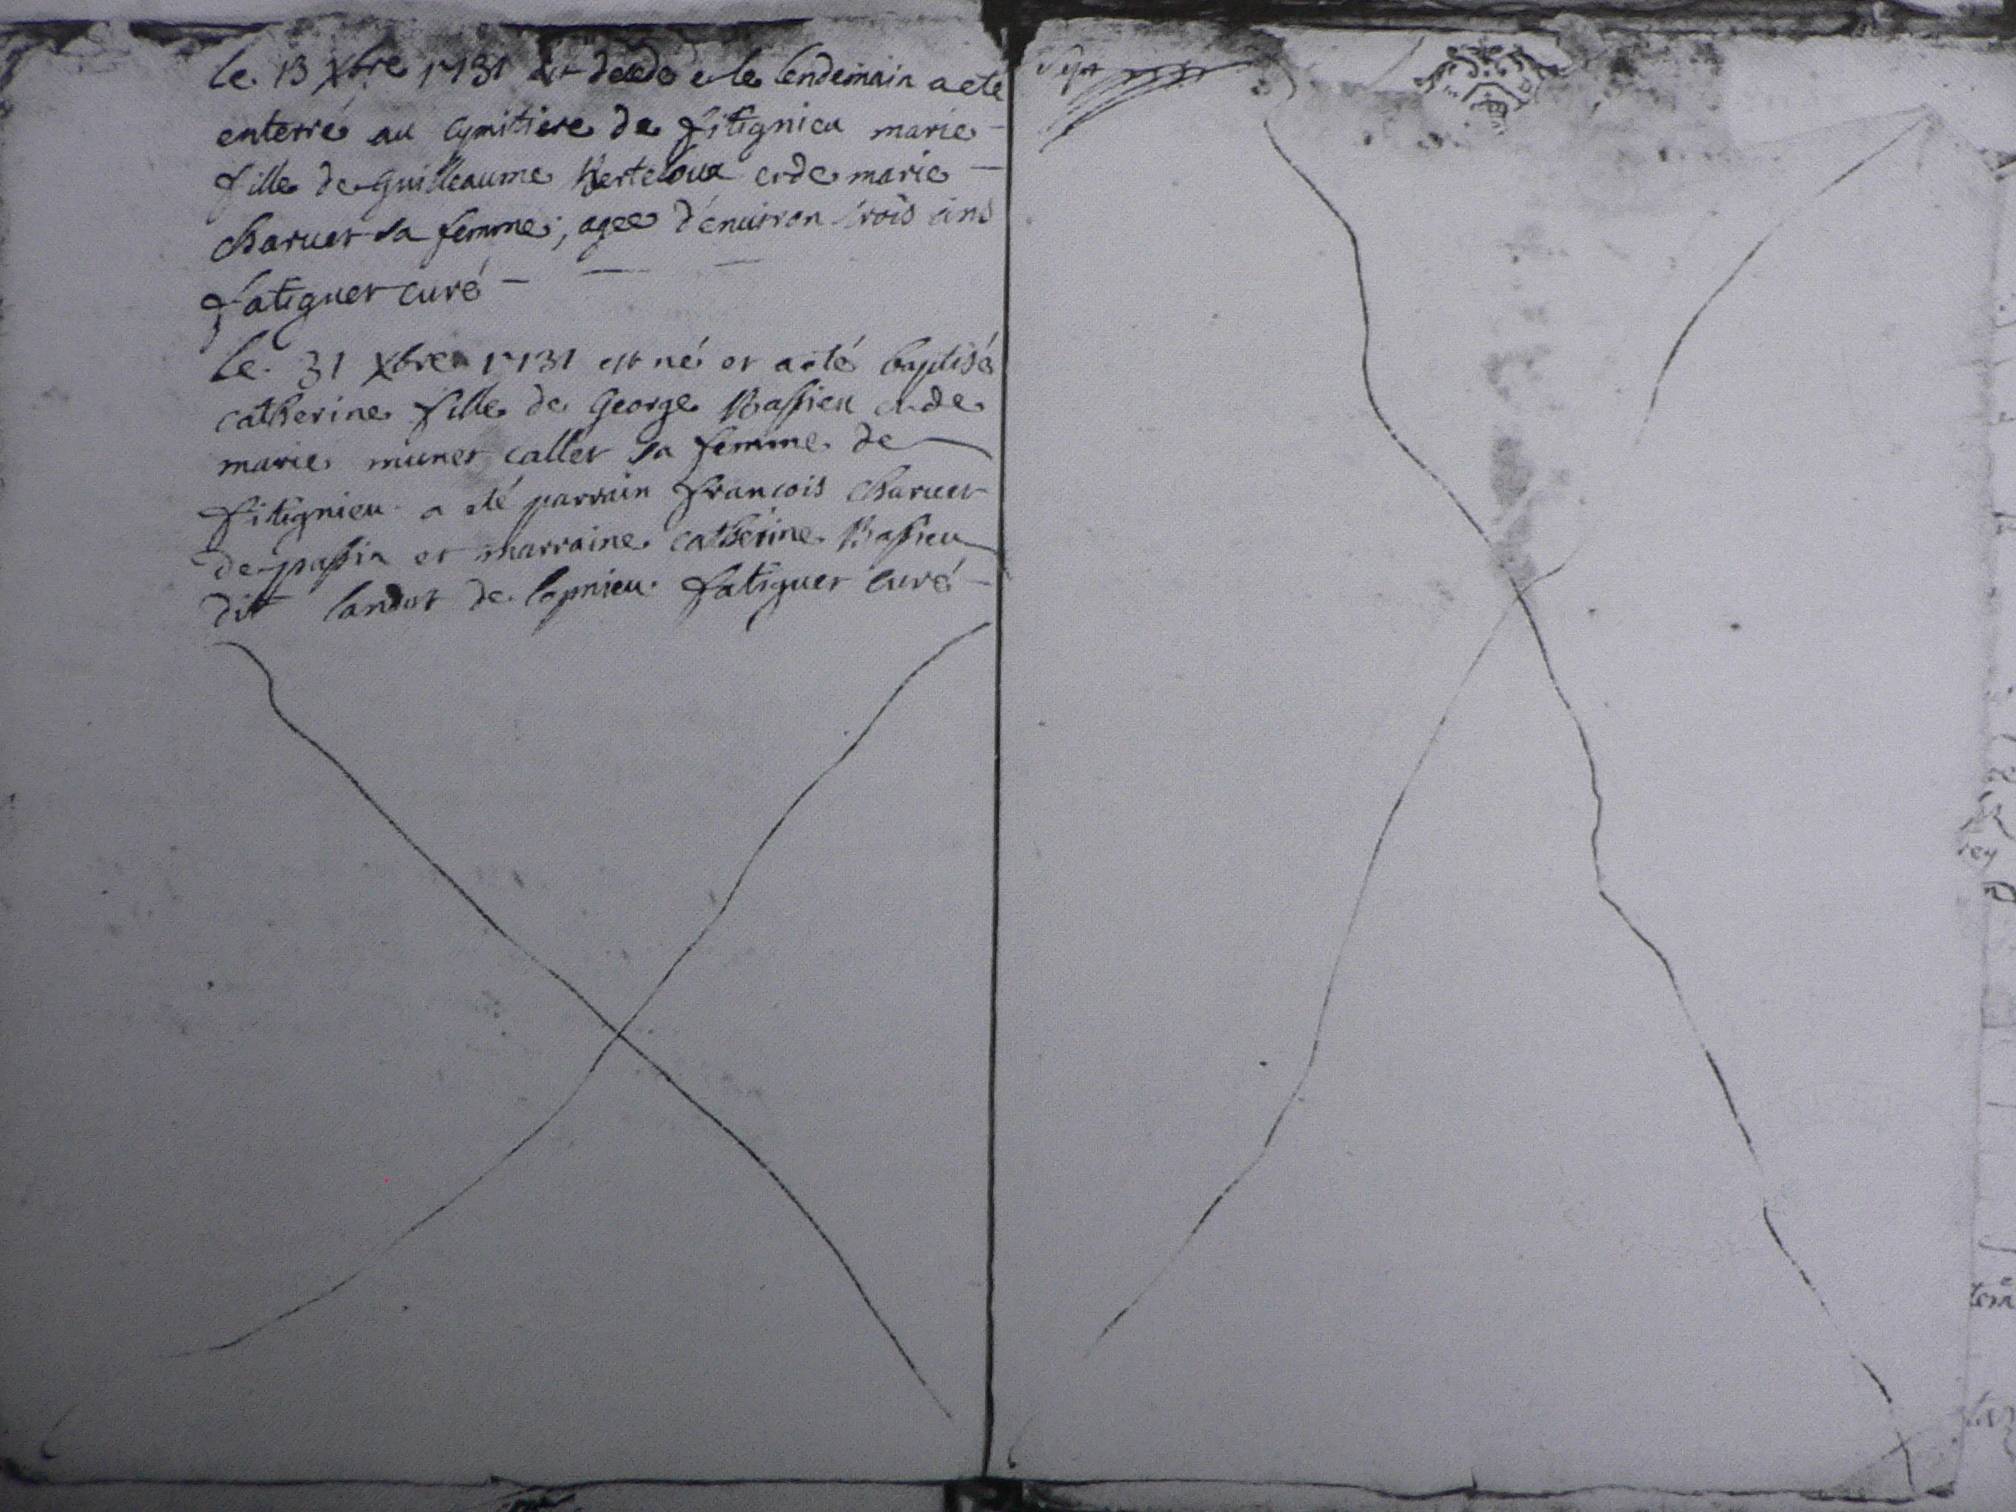 le 13 Xbre 1731 est decede et le lendemain a ete
enterré au cymitiere de fitignieu marie
fille de guilleaume Berteloux et de marie
charvet sa femme, agee d'environ trois ans
fatiguet curé
le 31 Xbre 1731 est né et a eté baptisé
catherine fille de george Bassieu et de
marie munet callet sa femme de
fitignieu a eté parrain françois charvet
de passin et marraine catherine Bassieu
dit landot de lopnieu fatiguet curé
Sept